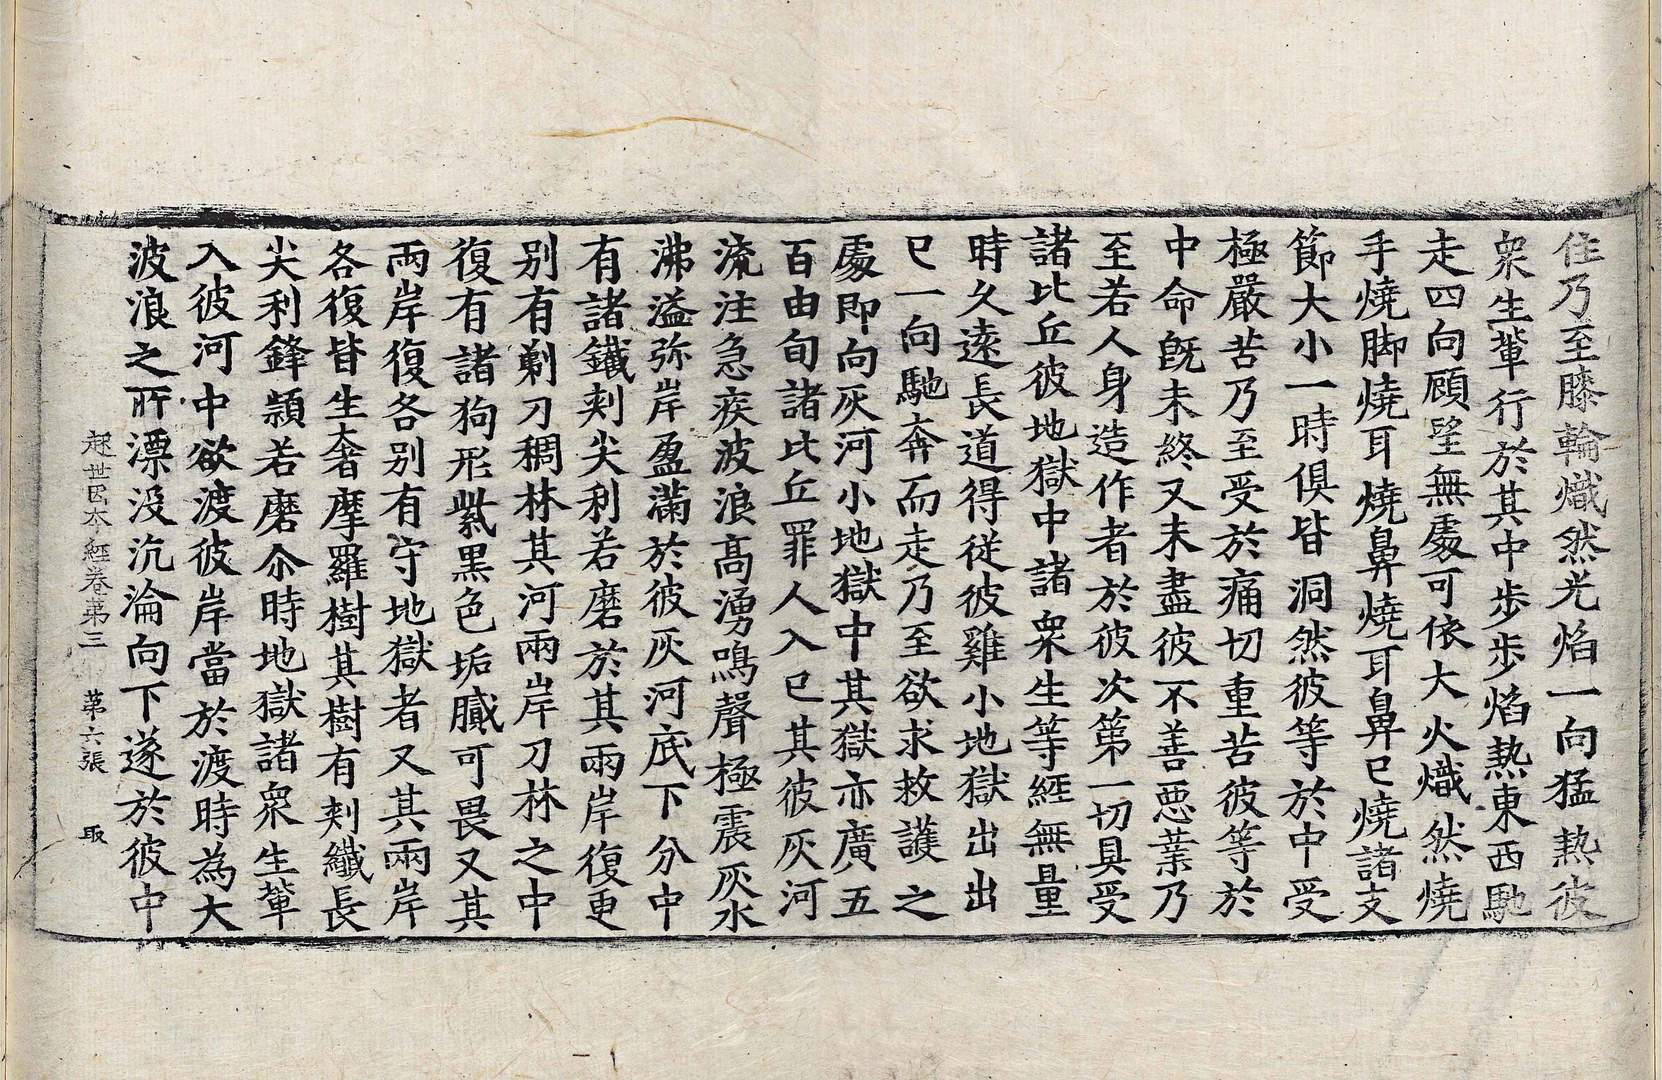 住乃至膝輪熾然光焰一向猛熱彼
衆生輩行於其中步步焰熱東西馳
走四向顧望無處可依大火熾然燒
手燒脚燒耳燒鼻燒耳鼻已燒諸支
節大小一時俱皆洞然彼等於中受
極嚴苦乃至受於痛切重苦彼等於
中命旣未終又未盡彼不善惡業乃
至若人身造作者於彼次第一切具受
諸比丘彼地獄中諸衆生等經無量
時久遠長道得從彼雞小地獄出出
已一向馳奔而走乃至欲求救護之
處即向灰河小地獄中其獄亦廣五
百由旬諸比丘罪人入已其彼灰河
流注急疾波浪高湧鳴聲極震灰水
沸溢弥岸盈滿於彼灰河底下分中
有諸鐵刾尖利若磨於其兩岸復更
別有剃刀稠林其河兩岸刀林之中
復有諸狗形紫黑色垢膩可畏又其
兩岸復各別有守地獄者又其兩岸
各復皆生奢摩羅樹其樹有刾纖長
尖利鋒頴若磨尒時地獄諸衆生輩
入彼河中欲渡彼岸當於渡時為大
波浪之所漂沒沉淪向下遂於彼中
起世因本經卷第三 第六張 取